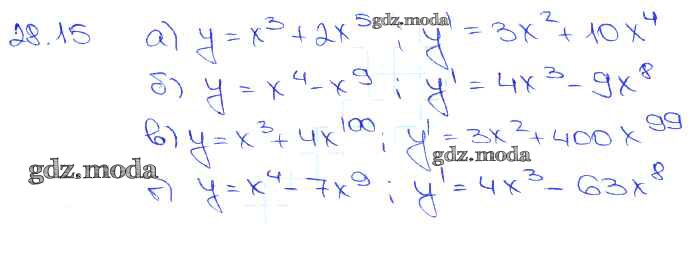 28.15 а) y = x³ + 2x⁵ ; y' = 3x² + 10x⁴
gdz.moda
б) y = x⁴ - x⁹ ; y' = 4x³ - 9x⁸
в) y = x³ + 4x¹⁰⁰ ; y' = 3x² + 400x⁹⁹
gdz.moda
gdz.moda
г) y = x⁴ - 7x⁹ ; y' = 4x³ - 63x⁸